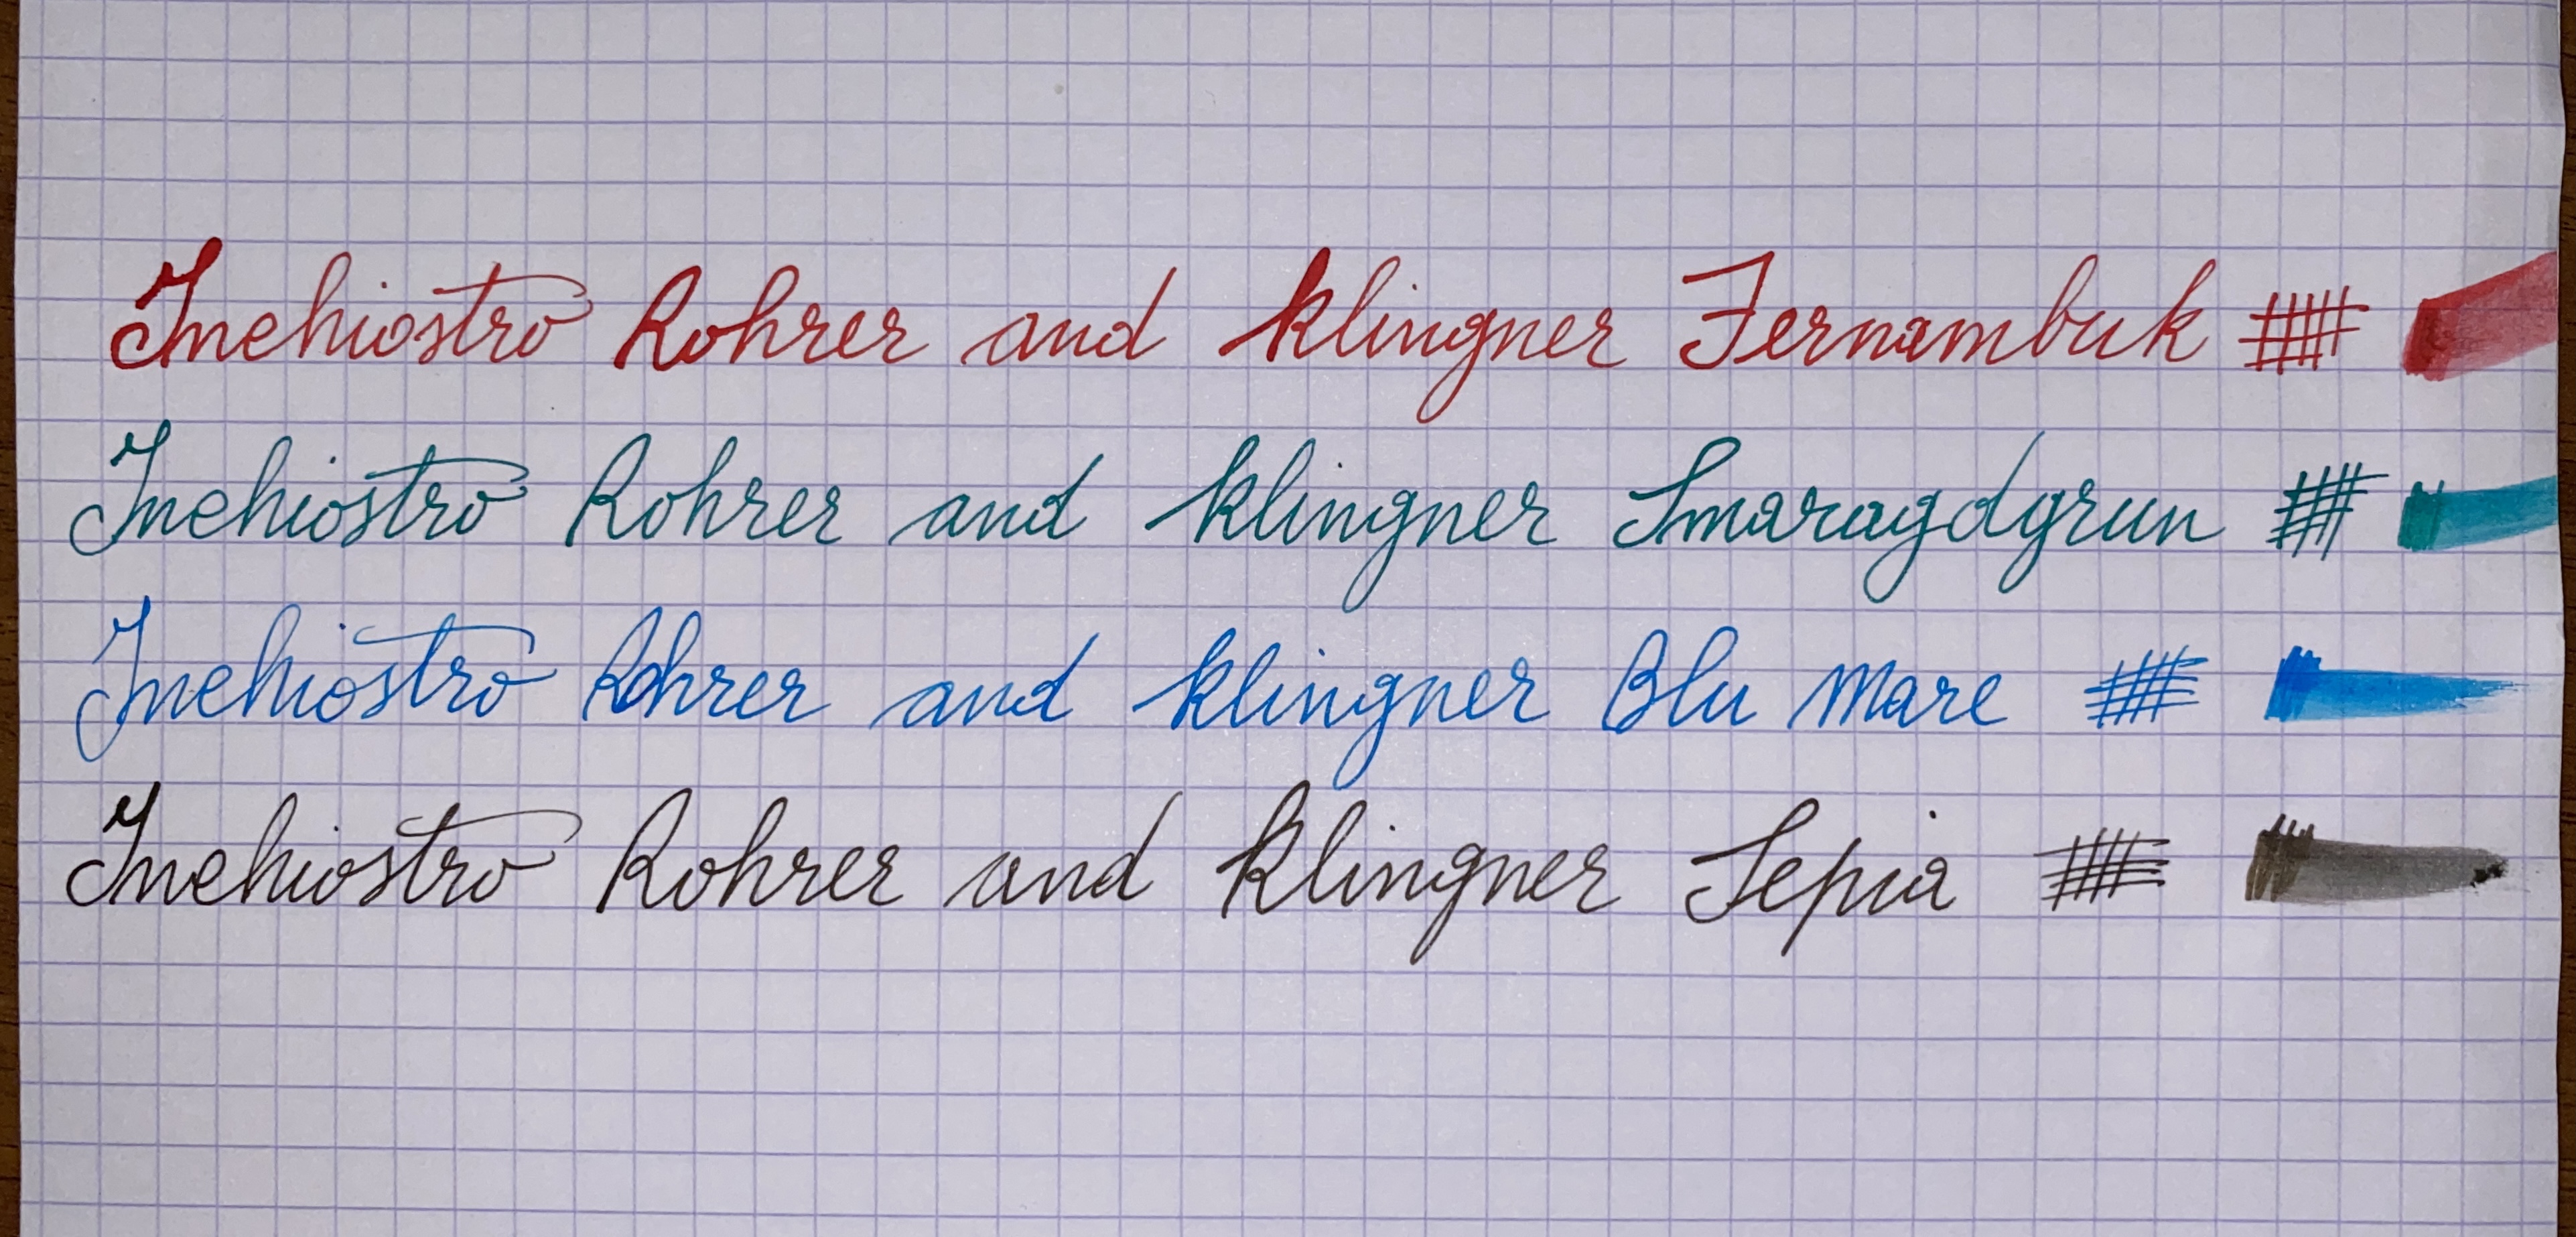 Inchiostro Rohrer and Klingner Fernambuk
Inchiostro Rohrer and Klingner Smaragdgrun
Inchiostro Rohrer and Klingner Blu Mare
Inchiostro Rohrer and Klingner Sepia